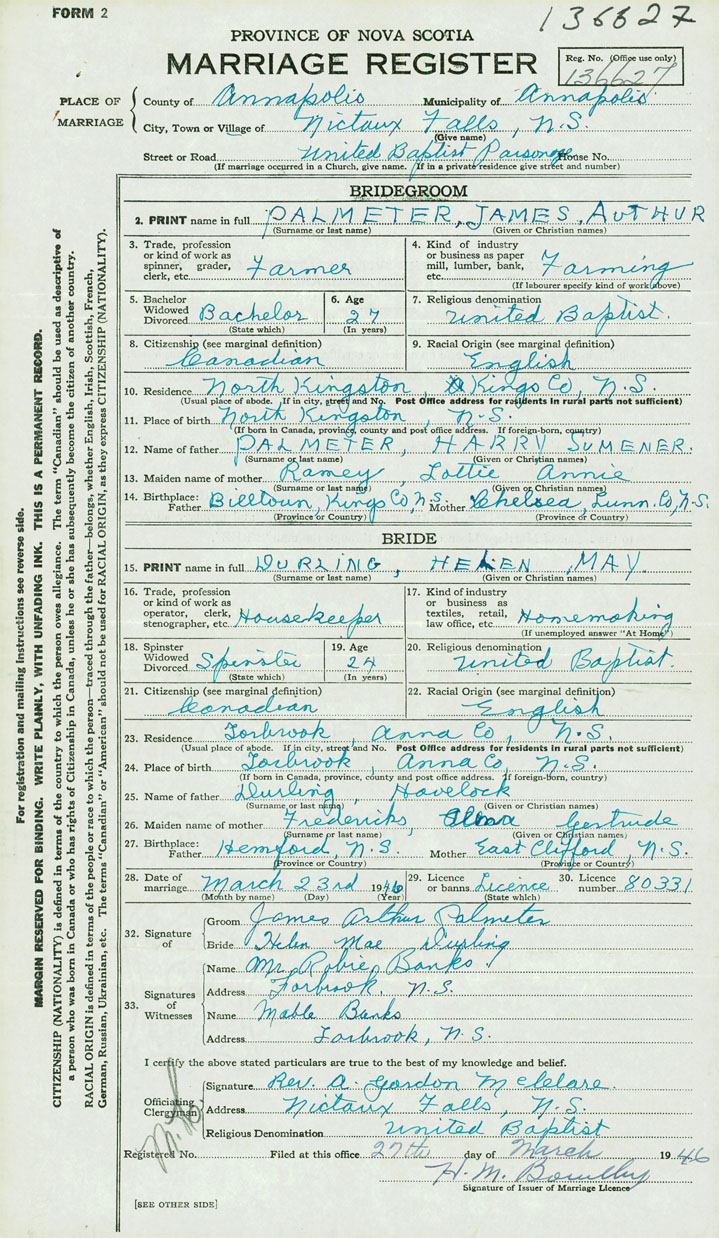 FORM 2
136627
PROVINCE OF NOVA SCOTIA
MARRIAGE REGISTER
Reg. No. (Office use only)
136627
PLACE OF MARRIAGE
County of Annapolis Municipality of Annapolis
City, Town or Village of Nictaux Falls, N.S.
(Give name)
Street or Road United Baptist Parsonage House No.
(If marriage occurred in a Church, give name. If in a private residence give street and number)
BRIDEGROOM
2. PRINT name in full PALMETER, JAMES, AUTHUR
(Surname or last name) (Given or Christian names)
3. Trade, profession or kind of work as spinner, grader, clerk, etc. Farmer
4. Kind of industry or business as paper mill, lumber, bank, etc. Farming
(If labourer specify kind of work above)
5. Bachelor Widowed Divorced Bachelor
(State which)
6. Age 27
(In years)
7. Religious denomination United Baptist.
8. Citizenship (see marginal definition) Canadian
9. Racial Origin (see marginal definition) English
10. Residence North Kingston, Kings Co, N.S.
(Usual place of abode. If in city, street and No. Post Office address for residents in rural parts not sufficient)
11. Place of birth North Kingston, N.S.
(If born in Canada, province, county and post office address. If foreign-born, country)
12. Name of father PALMETER, HARRY SUMENER.
(Surname or last name) (Given or Christian names)
13. Maiden name of mother Ramey, Lottie Annie
(Surname or last name) (Given or Christian names)
14. Birthplace: Father Billtown, Kings Co, N.S. Mother Chelsea, Lunn. Co, N.S.
(Province or Country) (Province or Country)
BRIDE
15. PRINT name in full DURLING, HELEN, MAY.
(Surname or last name) (Given or Christian names)
16. Trade, profession or kind of work as operator, clerk, stenographer, etc. Housekeeper
17. Kind of industry or business as textiles, retail, law office, etc. Homemaking
(If unemployed answer "At Home")
18. Spinster Widowed Divorced Spinster
(State which)
19. Age 24
(In years)
20. Religious denomination United Baptist.
21. Citizenship (see marginal definition) Canadian
22. Racial Origin (see marginal definition) English
23. Residence Torbrook, Anna Co, N.S.
(Usual place of abode. If in city, street and No. Post Office address for residents in rural parts not sufficient)
24. Place of birth Torbrook, Anna Co, N.S.
(If born in Canada, province, county and post office address. If foreign-born, country)
25. Name of father Durling, Havelock
(Surname or last name) (Given or Christian names)
26. Maiden name of mother Fredericks, Alma Gertrude
(Surname or last name) (Given or Christian names)
27. Birthplace: Father Hemford, N.S. Mother East Clifford, N.S.
(Province or Country) (Province or Country)
28. Date of marriage March 23rd 1946
(Month by name) (Day) (Year)
29. Licence or banns Licence
(State which)
30. Licence number 80331
32. Signature of
Groom James Arthur Palmeter
Bride Helen Mae Durling
33. Signatures of Witnesses
Name Mr. Robie Banks
Address Torbrook, N.S.
Name Mable Banks
Address Torbrook, N.S.
I certify the above stated particulars are true to the best of my knowledge and belief.
Officiating Clergyman
Signature Rev. A. Gordon McClelare.
Address Nictaux Falls, N.S.
Religious Denomination United Baptist
Registered No. Filed at this office 27th day of March 1946
H. M. Bowlby
Signature of Issuer of Marriage Licence
[SEE OTHER SIDE]
For registration and mailing instructions see reverse side.
MARGIN RESERVED FOR BINDING. WRITE PLAINLY, WITH UNFADING INK. THIS IS A PERMANENT RECORD.
CITIZENSHIP (NATIONALITY) is defined in terms of the country to which the person owes allegiance. The term "Canadian" should be used as descriptive of
a person who was born in Canada or who has rights of Citizenship in Canada, unless he or she has subsequently become the citizen of another country.
RACIAL ORIGIN is defined in terms of the people or race to which the person—traced through the father—belongs, whether English, Irish, Scottish, French,
German, Russian, Ukrainian, etc. The terms "Canadian" or "American" should not be used for RACIAL ORIGIN, as they express CITIZENSHIP (NATIONALITY).